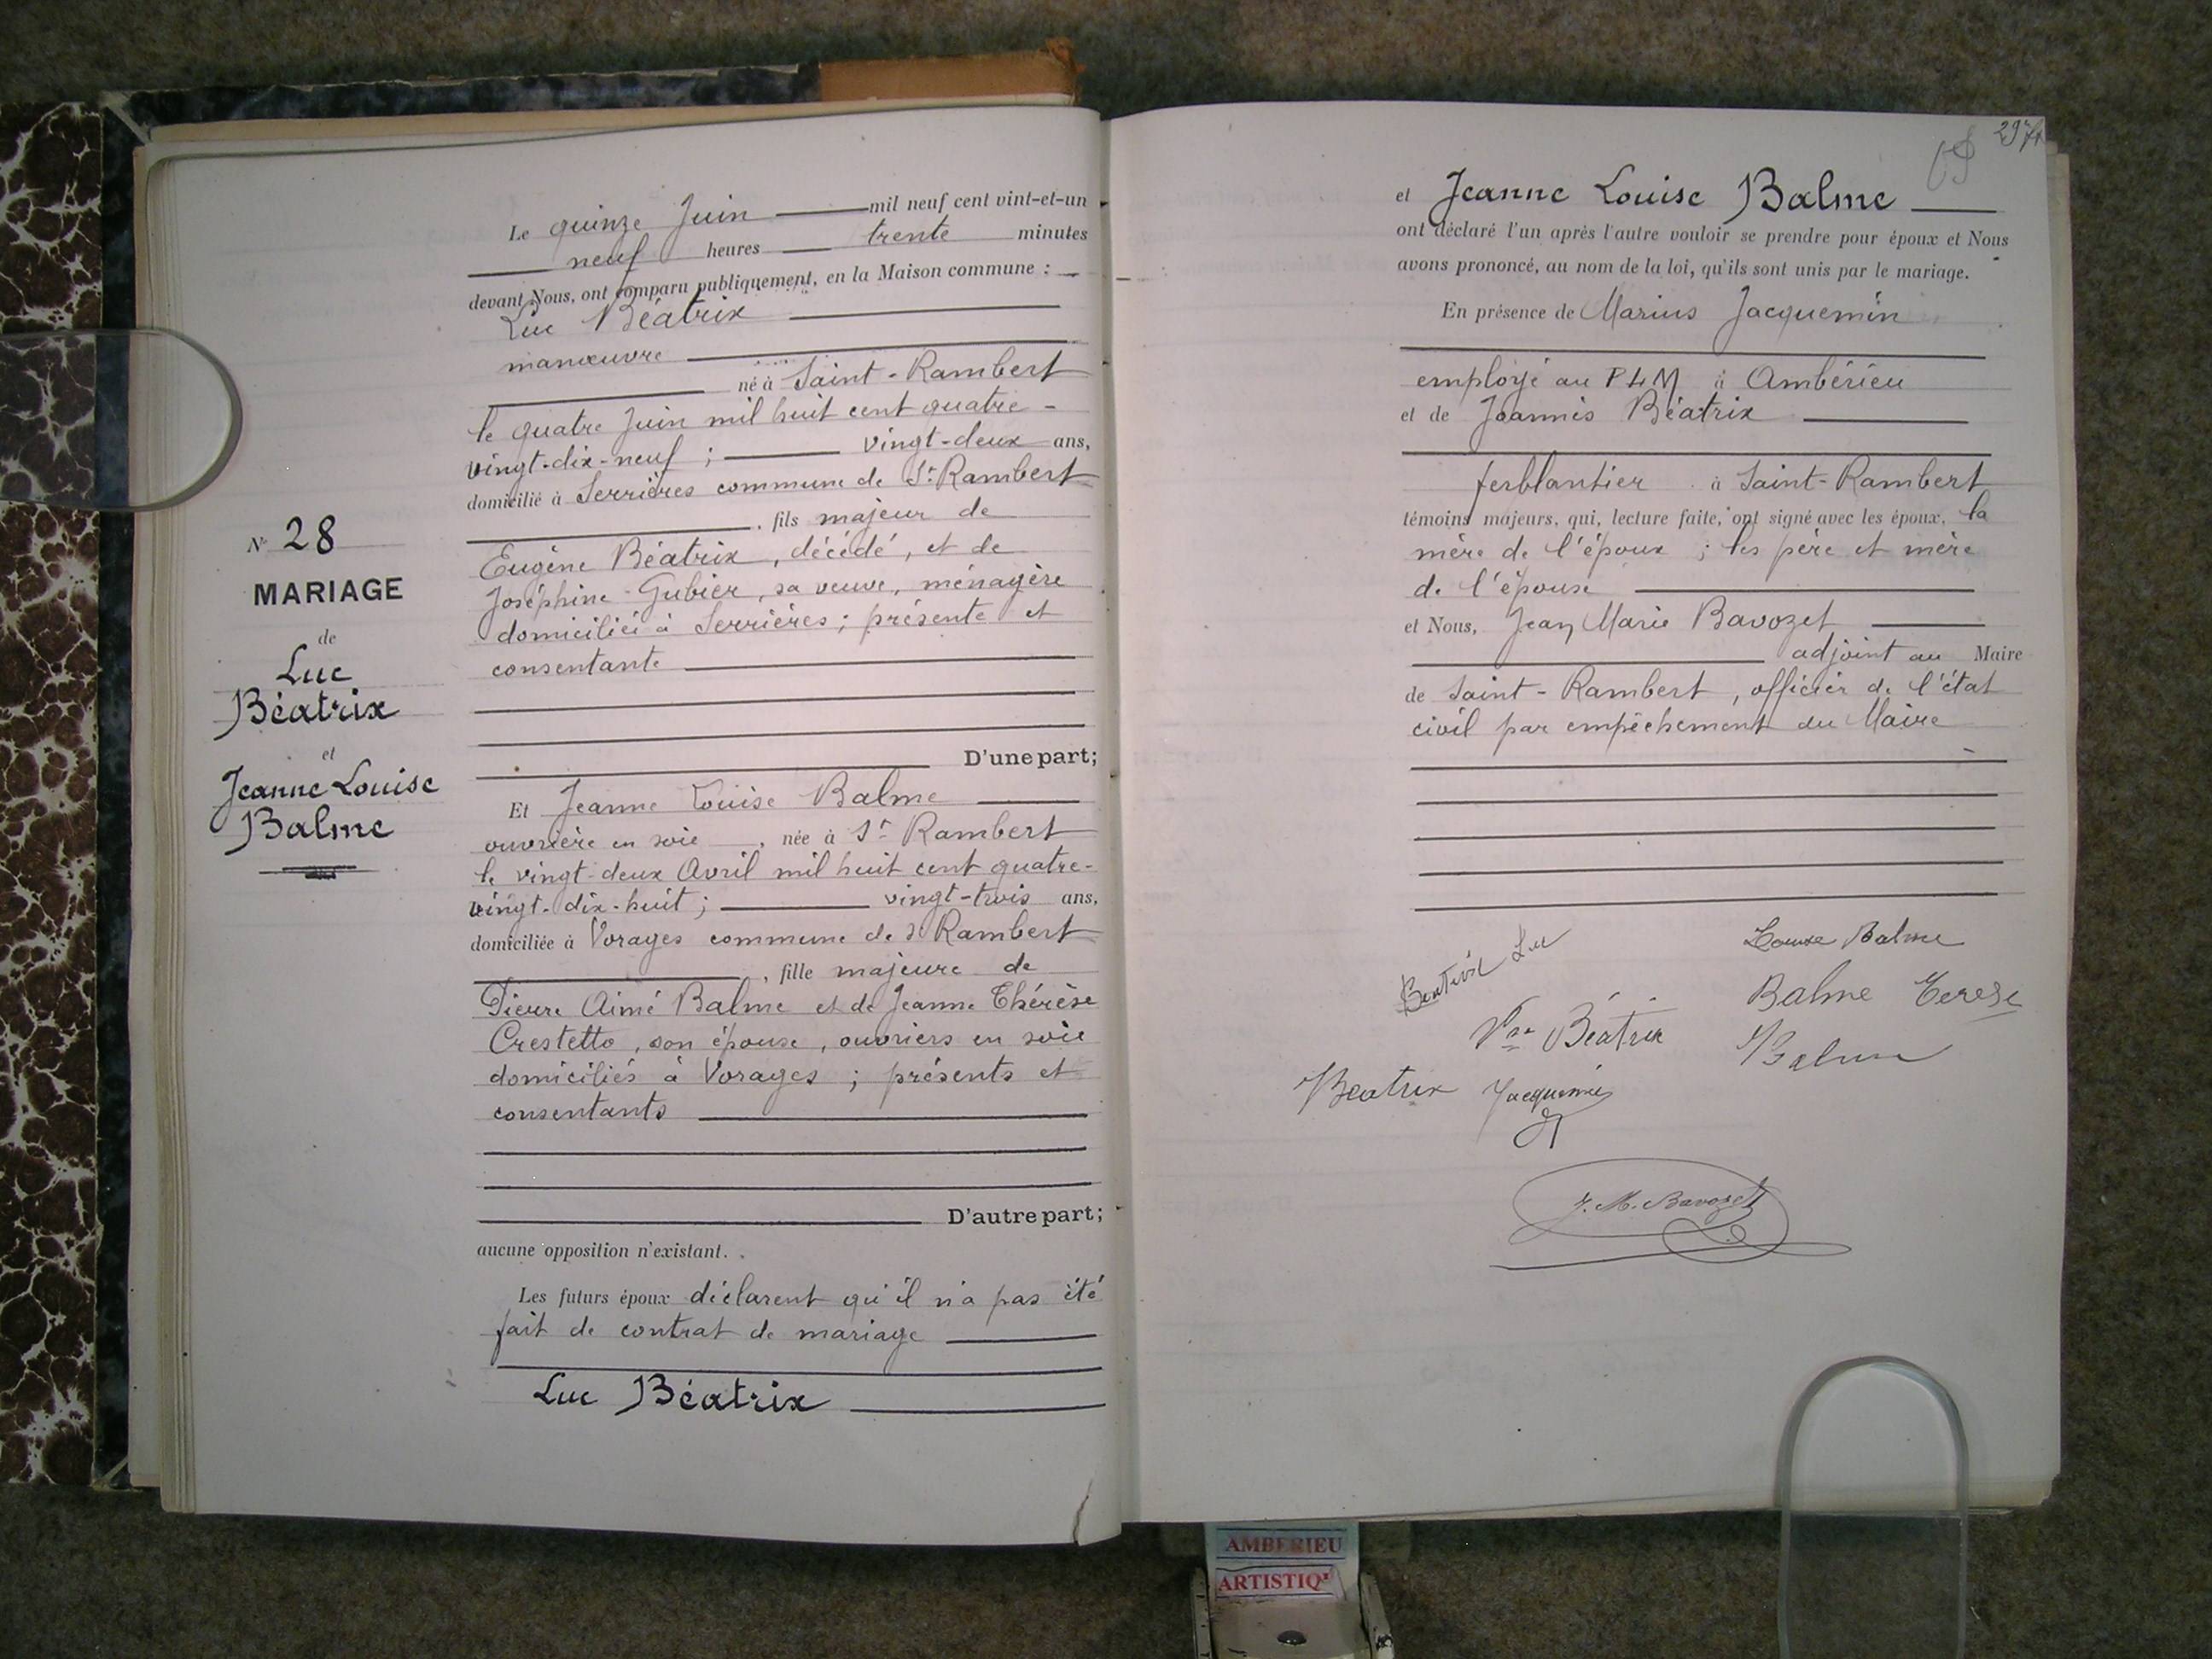 N° 28
MARIAGE
de
Luc
Béatrix
et
Jeanne Louise
Balme
Le quinze Juin mil neuf cent vint-et-un
neuf heures trente minutes
devant Nous, ont comparu publiquement, en la Maison commune :
Luc Béatrix
manœuvre
né à Saint-Rambert
le quatre Juin mil huit cent quatre-
vingt-dix-neuf ; vingt-deux ans,
domicilié à Serrières commune de St Rambert
, fils majeur de
Eugène Béatrix, décédé, et de
Joséphine Gubier, sa veuve, ménagère
domiciliée à Serrières ; présente et
consentante
D'une part;
Et Jeanne Louise Balme
ouvrière en soie, née à St Rambert
le vingt-deux Avril mil huit cent quatre-
vingt-dix-huit ; vingt-trois ans,
domiciliée à Vorages commune de St Rambert
, fille majeure de
Pierre Aimé Balme et de Jeanne Thérèse
Crestetto, son épouse, ouvriers en soie
domiciliés à Vorages ; présents et
consentants
D'autre part;
aucune opposition n'existant.
Les futurs époux déclarent qu'il n'a pas été
fait de contrat de mariage
Luc Béatrix
297
et Jeanne Louise Balme
ont déclaré l'un après l'autre vouloir se prendre pour époux et Nous
avons prononcé, au nom de la loi, qu'ils sont unis par le mariage.
En présence de Marius Jacquemin
employé au PLM à Ambérieu
et de Joannès Béatrix
ferblantier à Saint-Rambert
témoins majeurs, qui, lecture faite, ont signé avec les époux, la
mère de l'époux ; les père et mère
de l'épouse
et Nous, Jean Marie Bavozet
adjoint au Maire
de Saint-Rambert, officier de l'état
civil par empêchement du Maire
Béatrix Luc
Louise Balme
Balme Terese
Vve Béatrix
Balme
Béatrix
Jacquemin
J. M. Bavozet
AMBERIEU
ARTISTIQ